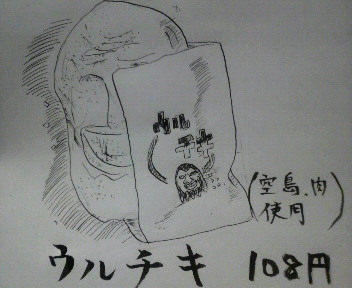 ウル
チキ
(空島、肉
使用)
ウルチキ 108円